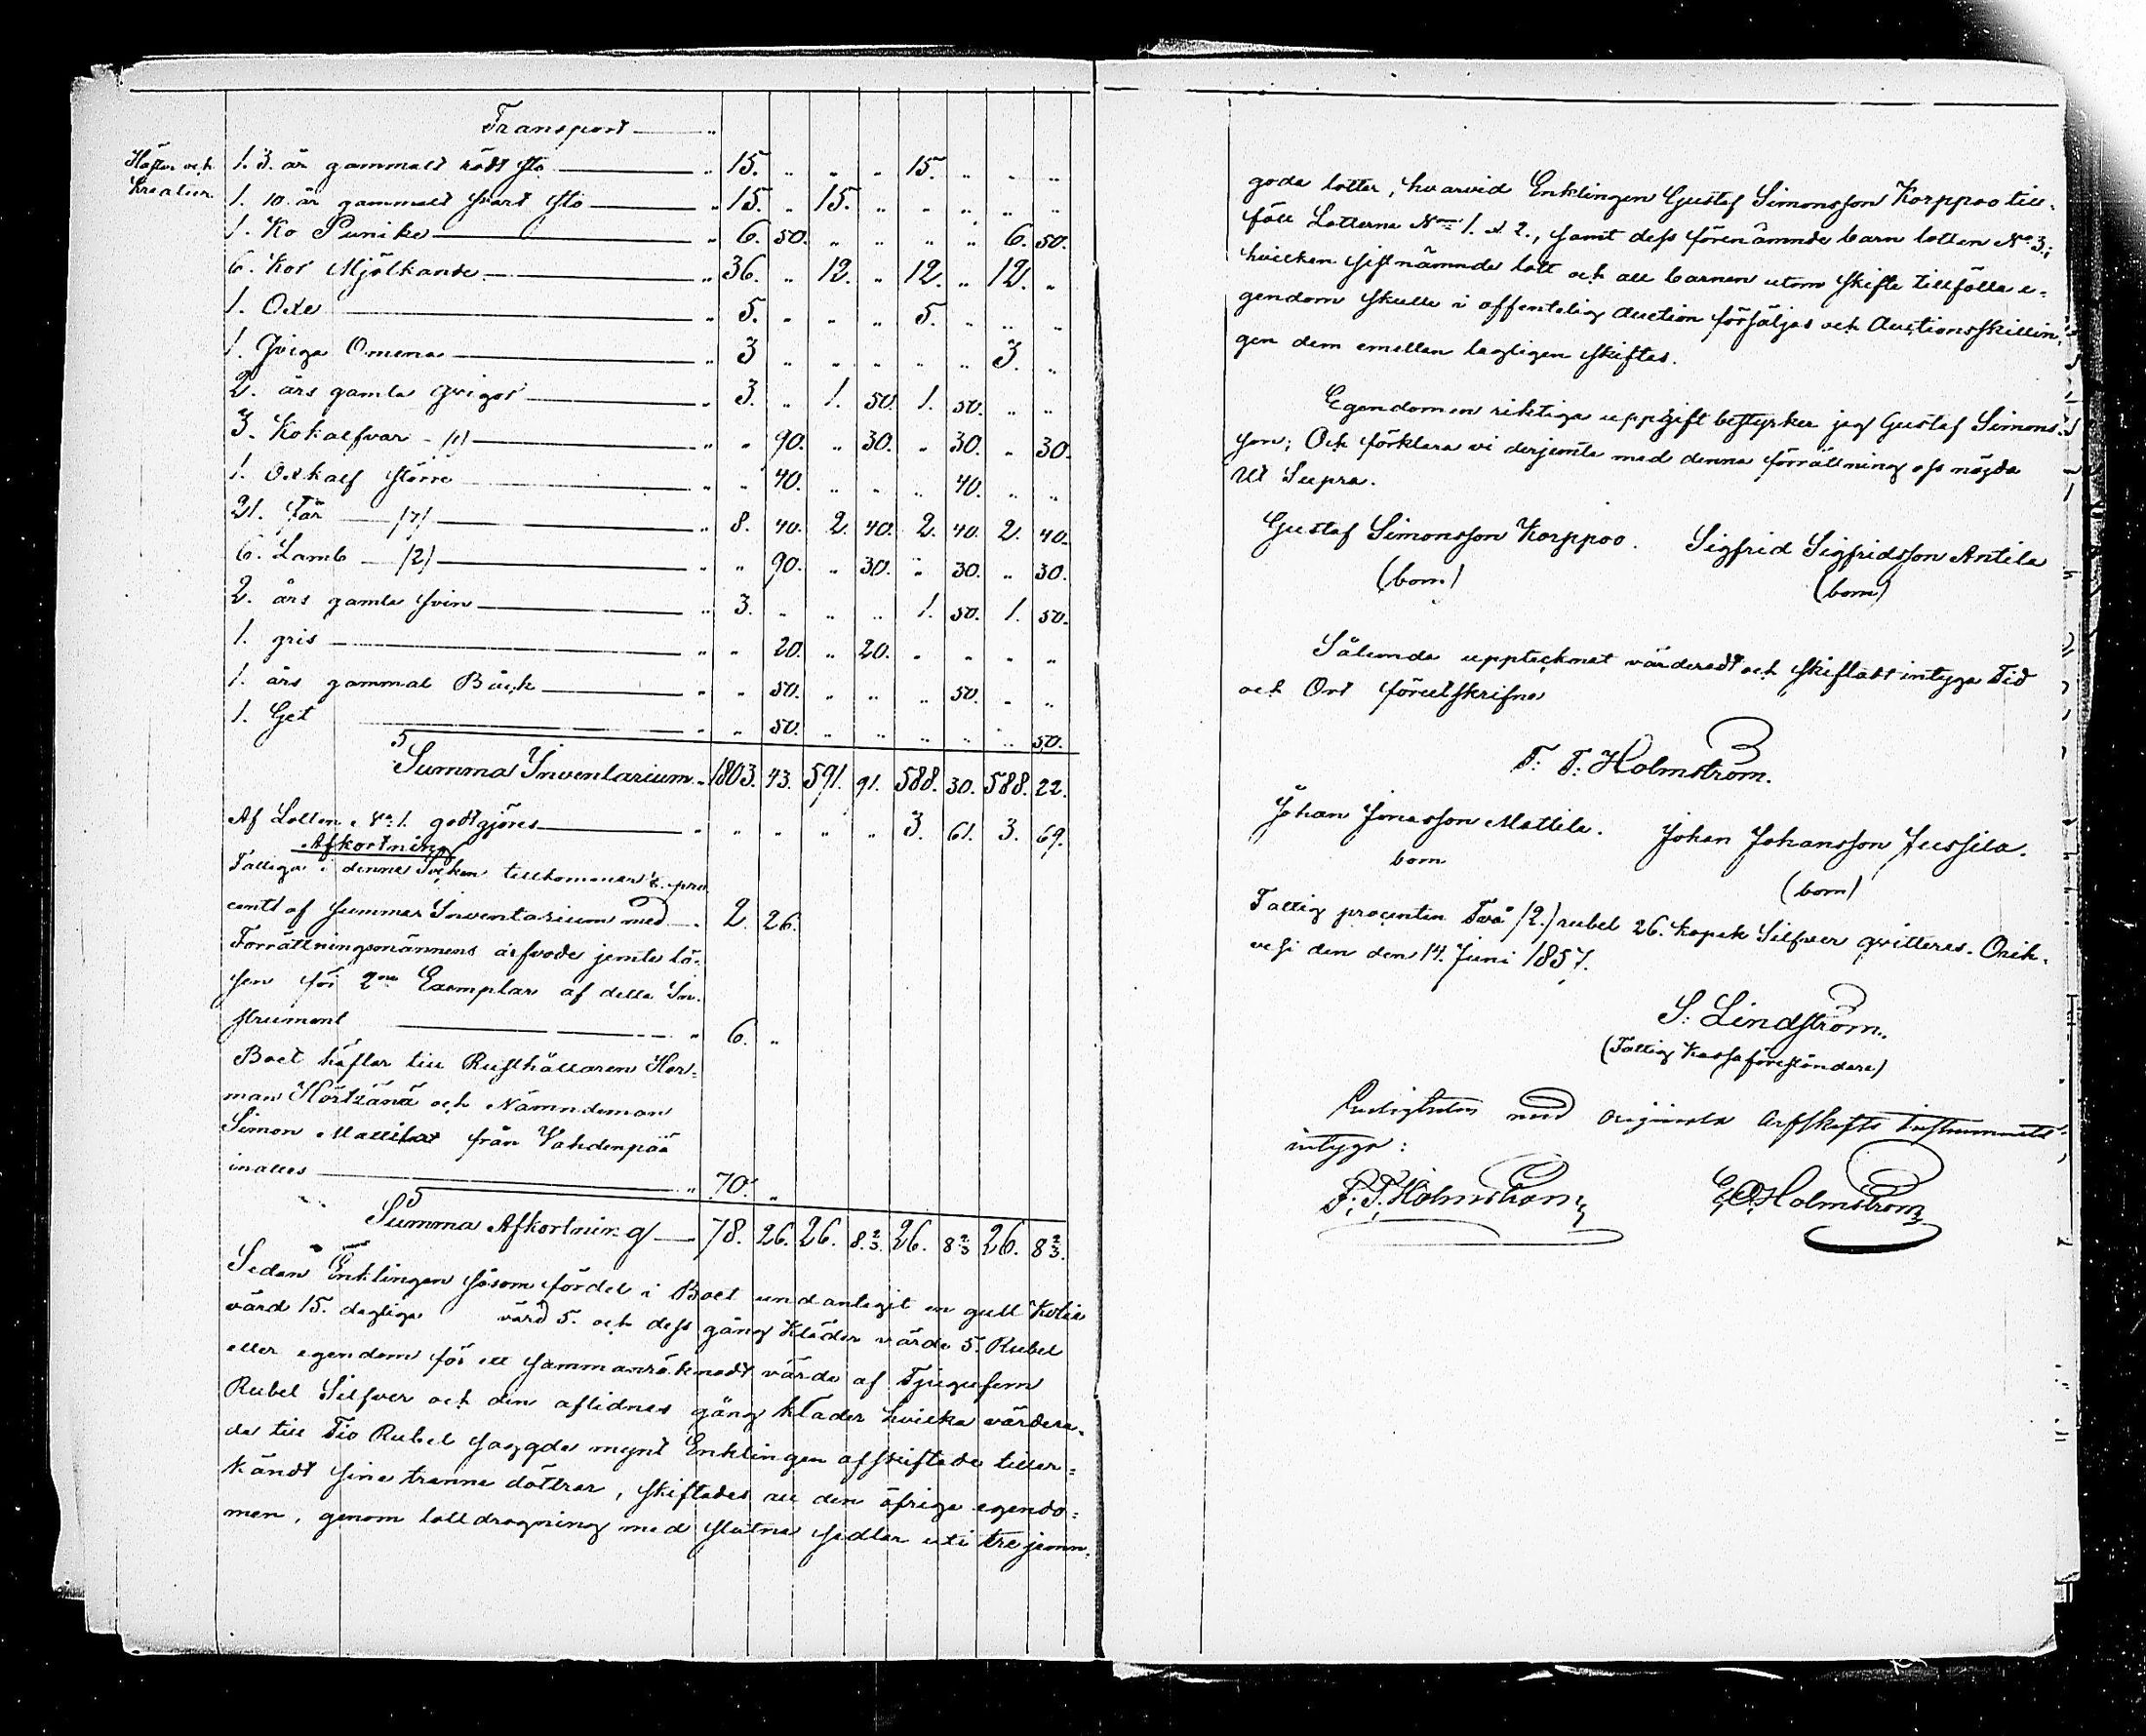 Transport
Hästar och
Kreatur
1. 3. år gammalt rödt sto " 15. " " " 15. " " "
1. 10. år gammalt svart sto " 15. " 15. " " " " "
1. Ko Punike " 6. 50. " " " " 6. 50.
6. Kor Mjölkande " 36. " 12. " 12. " 12. "
1. Oxe " 5. " " " 5. " " "
1. Qviga Omena " 3 " " " " " 3. "
2. års gamla qvigor " 3. " 1. 50. 1. 50. " "
3. Kokalfvar - /1/ " " 90. " 30. " 30. " 30.
1. Oxkalf större " " 40. " " " 40. " "
21. Får /7/ " 8. 40. 2. 40. 2. 40. 2. 40.
6. Lamb /2/ " " 90. " 30. " 30. " 30.
2. års gamla svin " 3. " " " 1. 50. 1. 50.
1. gris " " 20. " 20. " " " "
1. års gammal Båck " " 50. " " " 50. " "
1. Get " " 50. " " " " " 50.
Summa Inventarium " 1803. 43. 591. 91. 588. 30. 588. 22.
Af Lotten No 1. godtgjöres " " " " " 3. 61. 3. 69.
Afkortning
Fattiga i denna Socken tillkommer 1/8. pro
cent af Summa Inventarium med 2. 26.
Förrättningsmännens arfvode jemte lö-
sen för 2ne Exemplar af detta In-
strument " 6. "
Boet häftar till Rusthållaren Her-
man Hörtzänä och Nämndeman
Simon Mattila från Vahdenpää
inalles " 70. "
Summa Afkortning 78. 26. 26. 8. 2/3. 26. 8 2/3 26. 8 2/3.
Sedan Enklingen såsom fördel i Boet undantagit en gull
värd 15. dagliga värd 5. och dess gång Kläder värde 5. Rubel
eller egendom för ett sammanräknadt värde af Tjugufem
Rubel Silfver och den aflidnes gång kläder hvilka värdera-
des till Tio Rubel sagde mynt Enklingen afskiftade tiller-
kändt sine trenne döttrar, skiftades all den öfriga egendo-
men, genom lottdragning med slutna sedlar uti tre jemn-
goda lotter, hvarvid Enklingen Gustaf Simonsson Korppoo till-
föll Lotterne Nris 1. & 2., samt dess förenämnde barn lotten No 3.;
hvilken sistnämnde lott och all barnen utom skifte tillfölla e-
gendom skulle i offentelig Auction försäljas och Auctionsskillin-
gen dem emellan lagligen skiftas.
Egendomen riktiga uppgift bestyrker jag Gustaf Simons-
son; Och förklara vi derjemte med denna förrättning oss nöjda
Ut Supra.
Gustaf Simonsson Korppoo. Sigfrid Sigfridsson Antila
(bom) (bom)
Sålunda upptecknat värderadt och skiftadt intyga Tid
och Ort förutskrifne
F: F: Holmström.
Johan Jonasson Mattila. Johan Johansson Jussila.
bom (bom)
Fattig procenten Två /2./ rubel 26. kopek Silfver qvitteras. Orih-
vesi den den 14. Juni 1857.
S: Lindström.
(Fattig Kassaföreståndare)
Enligheten med originala Arfskifts Instrumentet
intyga:
F: F. Holmström E. O. Holmström